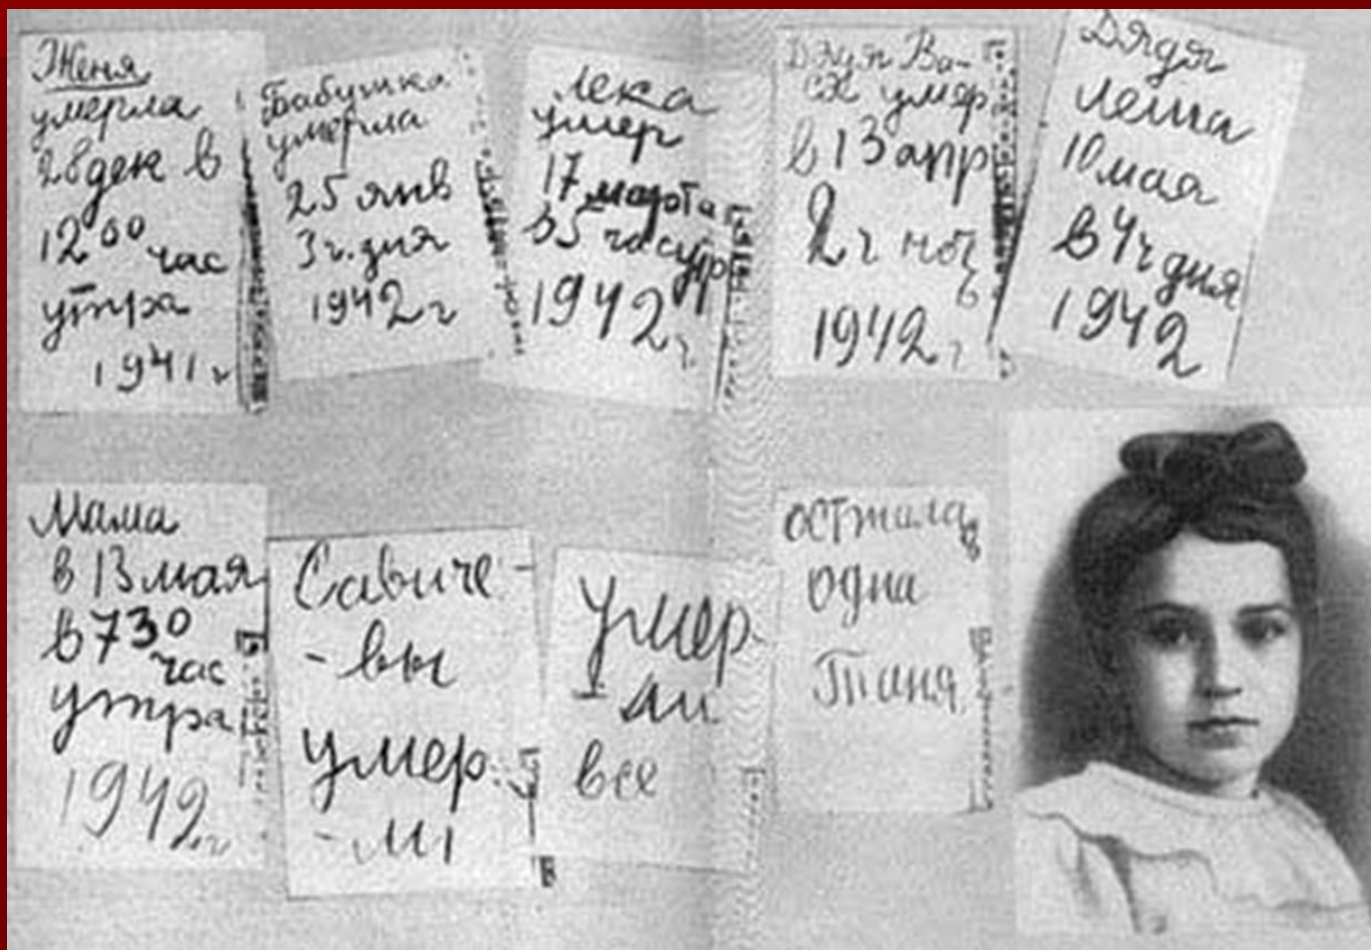 Женя
умерла
28 дек в
12 00 час
утра
1941 г
Бабушка
умерла
25 янв
3 ч. дня
1942 г
Лека
умер
17 марта
в 5 час утр
1942 г
Дядя Ва-
ся умер
в 13 апр
2 ч ноч
1942 г
Дядя
Леша
10 мая
в 4 ч дня
1942
Мама
в 13 мая
в 730
час
утра
1942 г
Савиче-
-вы
умер
-ли
Умер
-ли
все
осталась
одна
Таня